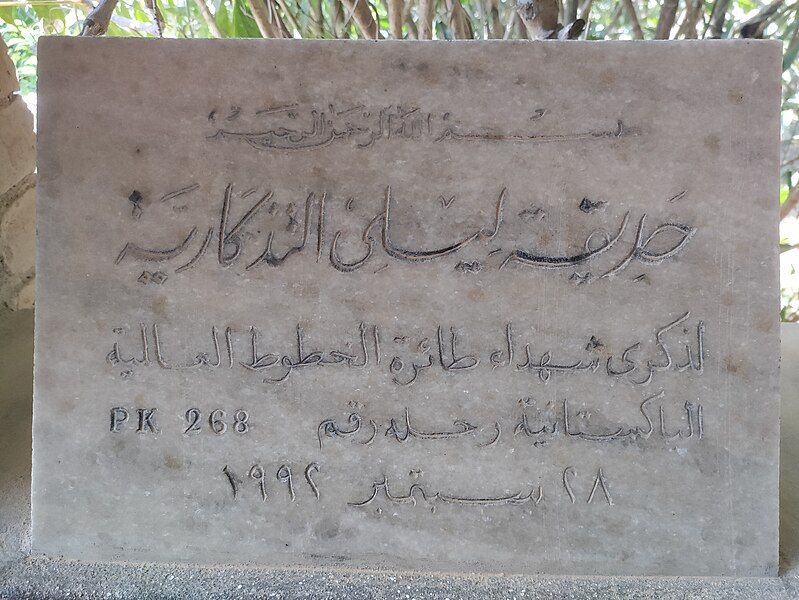 بسم الله الرحمن الرحيم
حديقة ليلى التذكارية
لذكرى شهداء طائرة الخطوط العالمية
الباكستانية رحله رقم PK 268
٢٨ سبتمبر ١٩٩٢